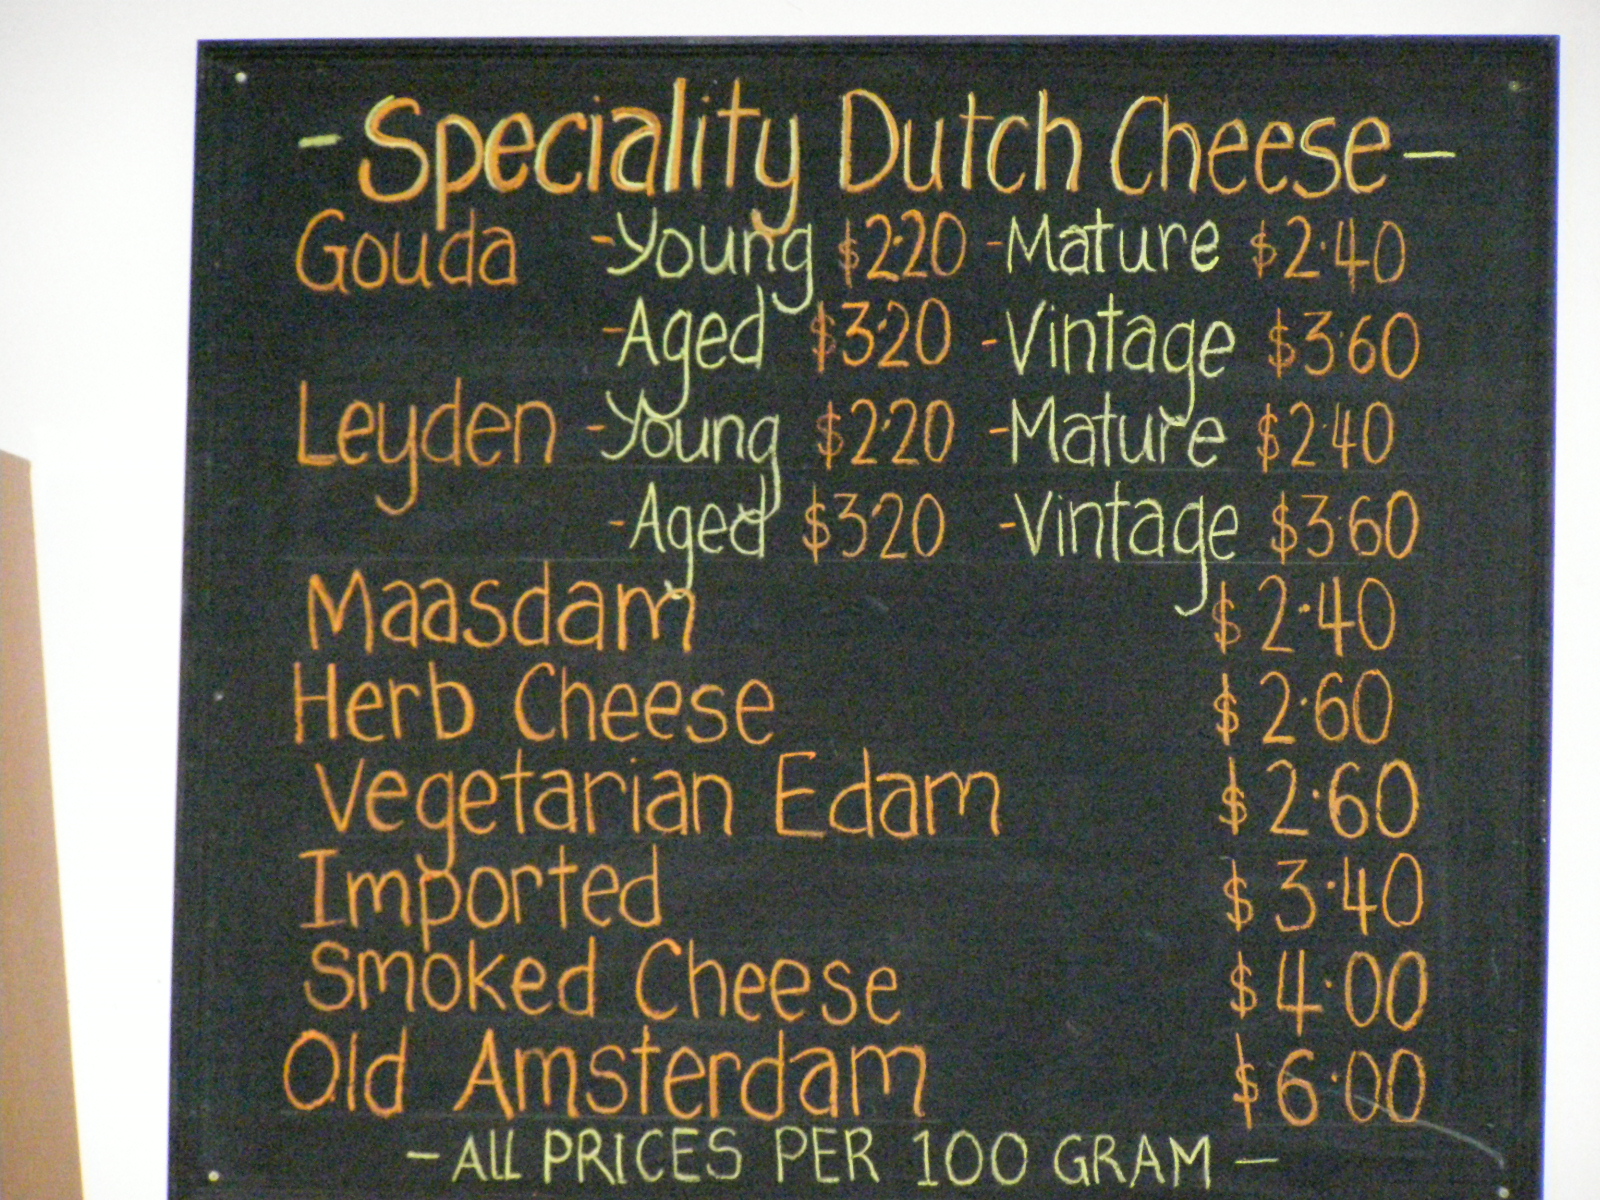 - Speciality Dutch Cheese -
Gouda - Young $2·20 - Mature $2·40
- Aged $3·20 - Vintage $3·60
Leyden - Young $2·20 - Mature $2·40
- Aged $3·20 - Vintage $3·60
Maasdam $2·40
Herb Cheese $2·60
Vegetarian Edam $2·60
Imported $3·40
Smoked Cheese $4·00
Old Amsterdam $6·00
- ALL PRICES PER 100 GRAM -